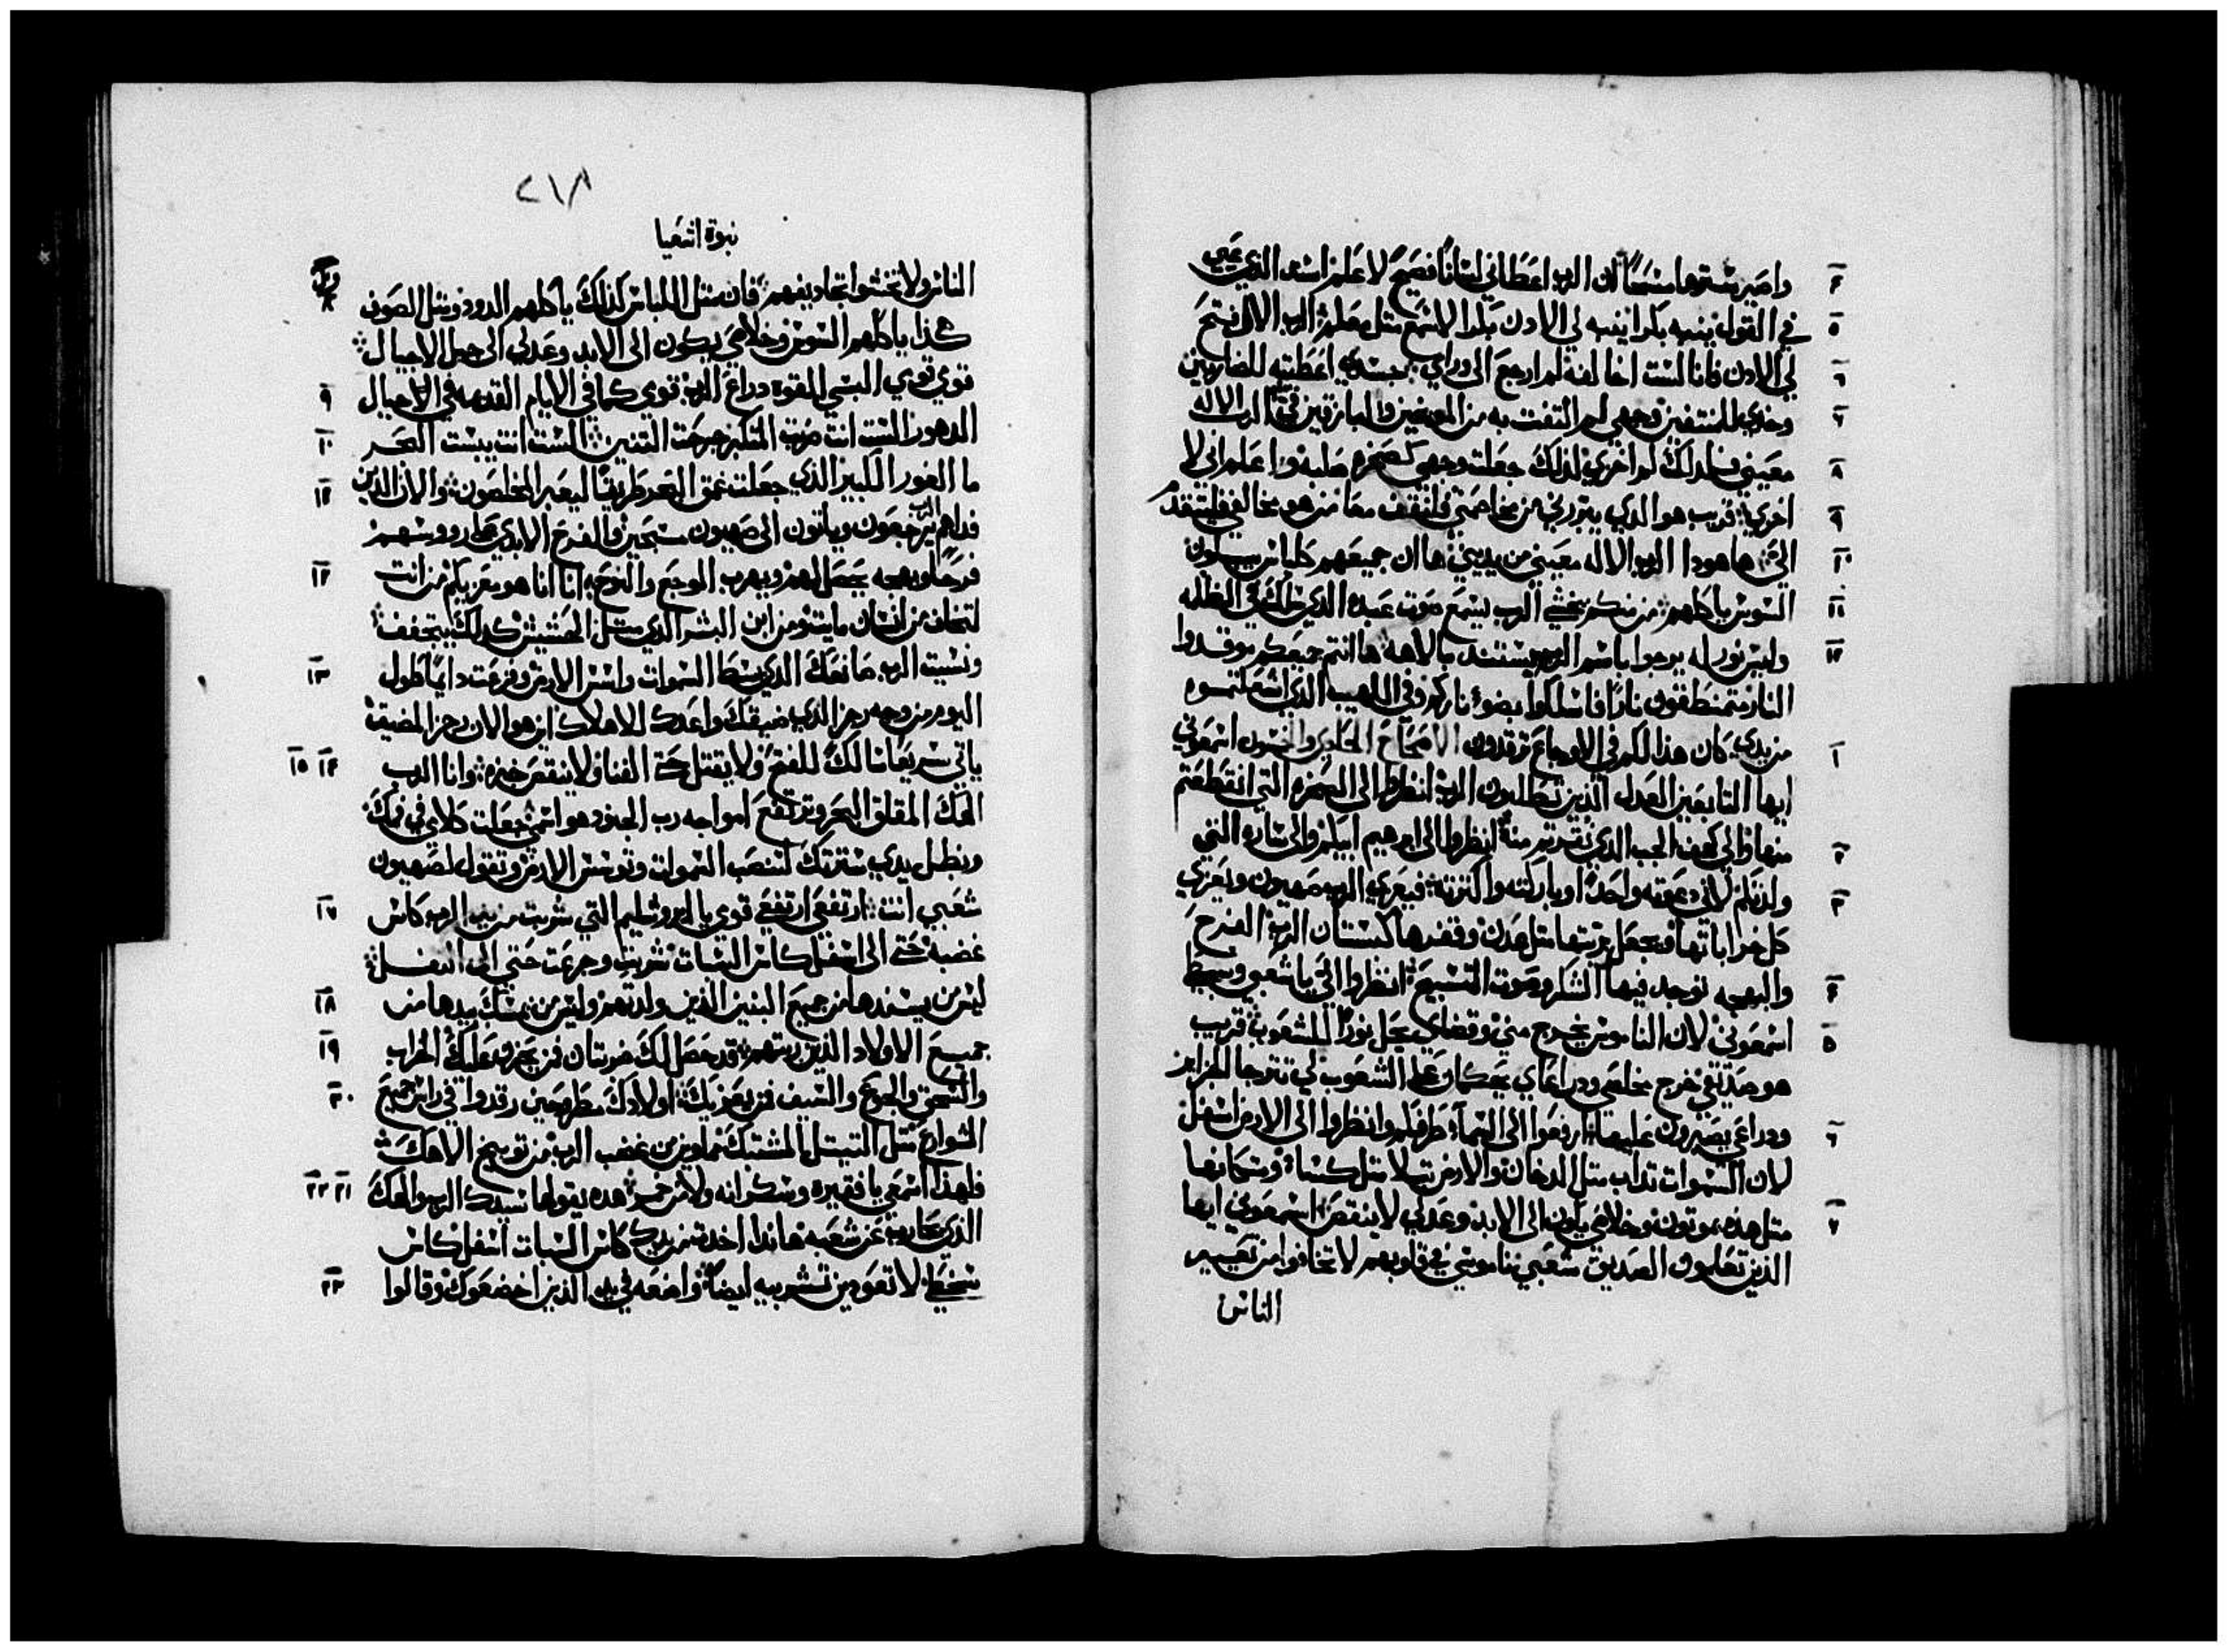 واصير سترها مسحًا ان الرب اعطاني لسانًا فصيح لاعلم اسند الذي عيي
في القول ينبه بكرا ينبه لي الادن بكرا لاسمع متل معلم الرب الاله فتح
لي الادن فانا لست اخالف لم ارجع الى وراي جسدي اعطيته للضاربين
وخدي للنتفين وجهي لم التفت به من المعيرين والبازقين في الرب الاله
معيني فلدلك لم اخزى لدلك جعلت وجهي كصخره صلبه واعلم اني لا
اخزى قريب هو الدي يبررني من يخاصمني فلنقف معًا من هو مخالفي فليتقدم
الي ها هودا الرب الاله معيني من يدينني ها ان جميعهم كلباس يبلون
السوس ياكلهم من منكم يخشى الرب يسمع صوت عبده الدي سلك في الظلمه
وليس نور له يرجوا باسم الرب يستند بالاهه ها انتم جميعكم موقدوا
النار متمنطقون نارًا فاسلكوا بضوء ناركم وفي اللهيب الدي اشعلتموه
من يدي كان هذا لكم في الاوجاع ترقدون الاصحاح الحادي والخمسون اسمعوني
ايها التابعين العدل الذين تطلبون الرب انظروا الى الصخره التي انقطعتم
منها والى كهف الجب الذي نقرتم منه انظروا الى ابرهيم ابيكم والى ساره التي
ولدتكم لاني دعوته واحدًا وباركته واكترته فيعزي الرب صهيون ويعزي
كل خراباتها ويجعل بريتها متل عدن وقفرها كبستان الرب الفرح
والبهجه توجد فيها الشكر وصوت التسبيح انظروا الي يا شعبي وسبطي
اسمعوني لان الناموس يخرج مني وقضاي يحل نورًا للشعوب قريب
هو صديقي خرج مخلصي ودراعاي يحكمان على الشعوب لي تترجا الجزاير
ودراعي يصبرون عليها ارفعوا الى السماء طرفكم وانظروا الى الارض اسفل
لان السموات تداب متل الدخان والارض تبلا متل كساء وسكانها
متل هذه يموتون وخلاصي يكون الى الابد وعدلي لا ينقص اسمعوني ايها
الذين تعلمون الصديق شعبي ناموسي في قلوبهم لا تخافوا من تعيير
الناس
٢١٨
نبوة اشعيا
الناس ولا تخشوا تجاديفهم فان متل اللباس كذلك ياكلهم الدود ومتل الصوف
هكذا ياكلهم السوس وخلاصي يكون الى الابد وعدلي الى جيل الاجيال
قومي قومي البسي القوه دراع الرب قومي كما في الايام القدمه في الاجيال
الدهور الست انت ضربت المتكبر جرحت التنين الست انت يبست البحر
ما الغور الكبير الذي جعلت عمق البحر طريقًا ليعبر المخلصون والان الذين
فداهم الرب يرجعون وياتون الى صهيون مسبحين والفرح الابدي على رووسهم
فرحًا وبهجه يجعل لهم ويهرب الوجع والنوح انا انا هو معزيكم من انت
لتخاف من انسان مايت ومن ابن البشر الدي متل الحشيش كدلك يتجفف
ونسيت الرب صانعك الدي بسط السموات واسس الارض وفزعت دايمًا طول
اليوم من وجه رجز الدي ضيقك واعدك للاهلاك اين هو الان رجز المضيق
ياتي سريعًا سالك للفتح ولا يقتل حتى الفنا ولا ينقص خبزه وانا الرب
الهك المقلق البحر وترتفع امواجه رب الجنود هو اسمي جعلت كلامي في فمك
وبظل يدي سترتك لتنصب السموات وتوسس الارض وتقول لصهيون
شعبي انت ارتفعي ارتفعي قومي يا يروشليم التي شربت من يد الرب كاس
غضبه حتى الى اسفل كاس السبات شربت وجرعت حتى الى النفل
ليس من يسندها من جميع البنين الذين ولدتهم وليس من يمسك بيدها من
جميع الاولاد الذين ربتهم قد حصل لك ضربتان فمن يحزن عليك الخراب
والسحق والجوع والسيف فمن يعزيك اولادك مطروحين رقدوا في راس جميع
الشوارع متل التيتل المشتبك مملوين من غضب الرب من توبيخ الاهك
فلهذا اسمعي يا فقيره وسكرانه ولا من خمر هده يقولها سيدك الرب والهك
الذي حارب عن شعبه هاندا اخدت من يدك كاس السبات اسفل كاس
سخطي لا تعودين تشربيه ايضًا واضعه في يد الدين اخضعوك وقالوا